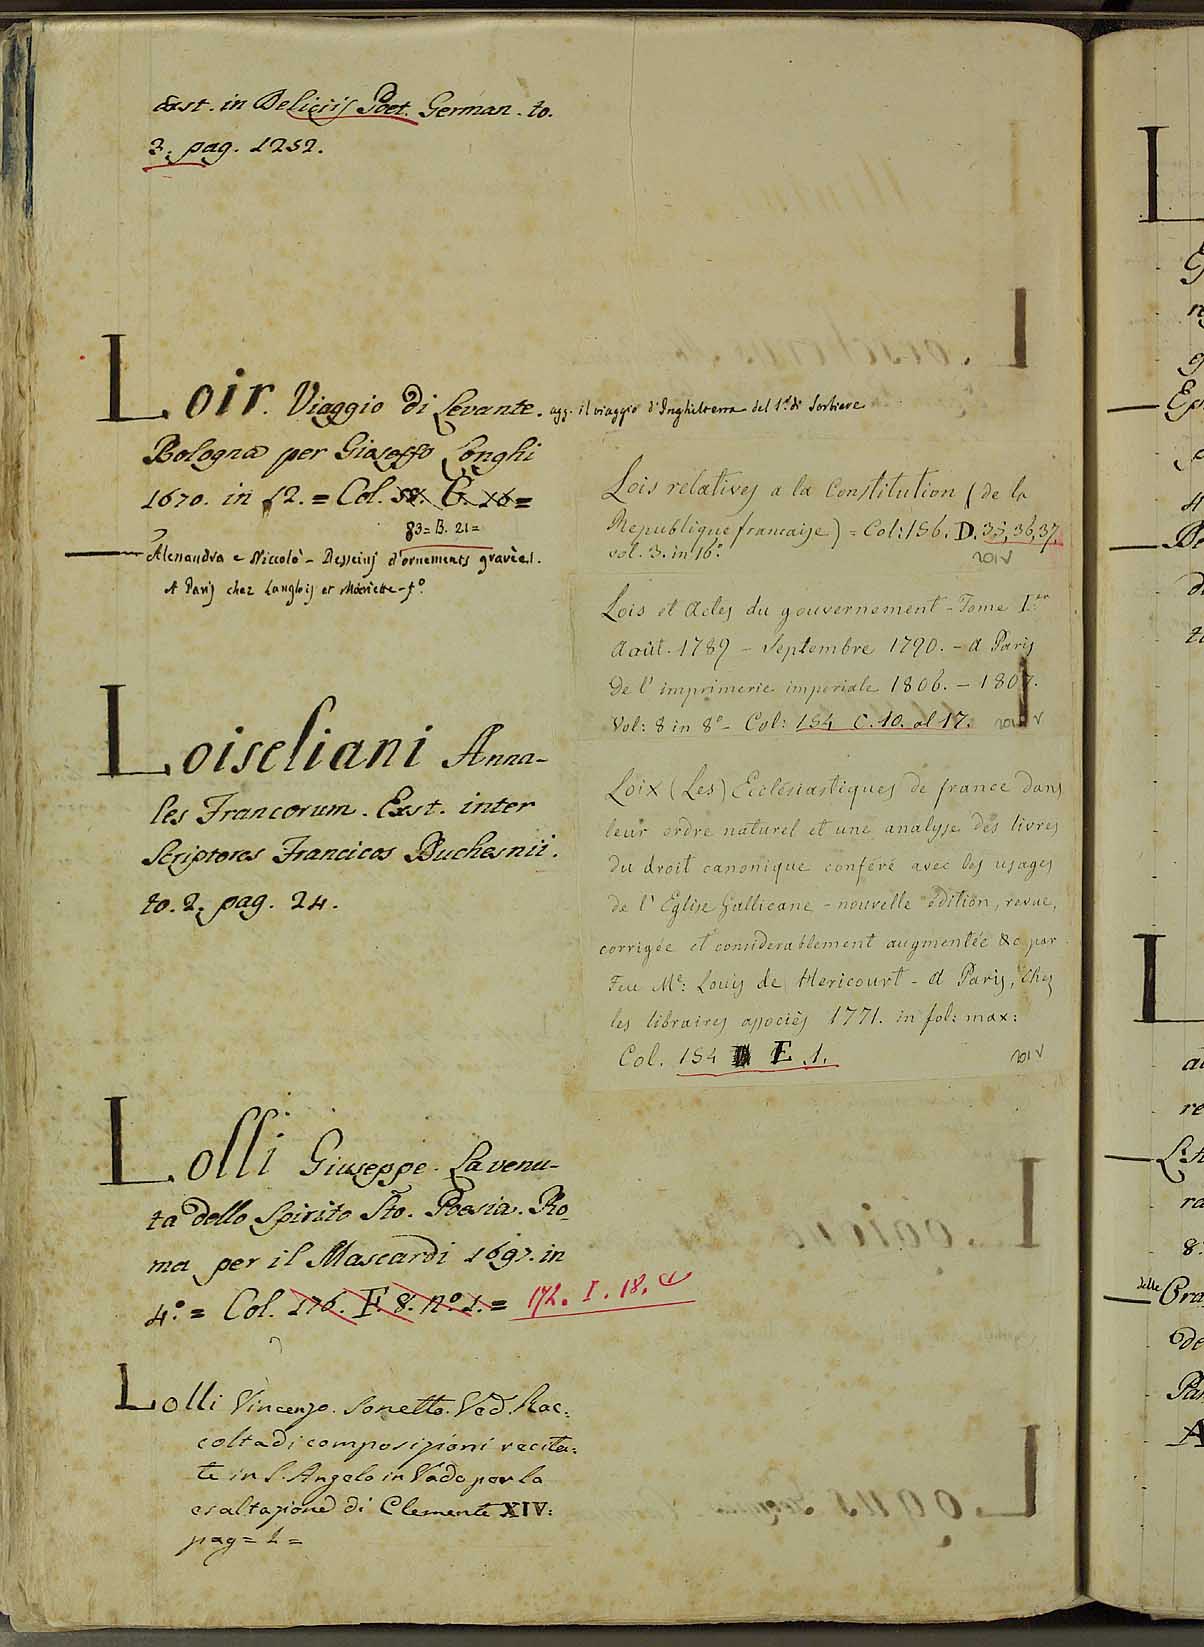 Exst. in Deliciis Poet. German. to.
3. pag. 1252.
Loir. Viaggio di Levante. agg. il viaggio d'Inghilterra del Sr. di Sorbiere
Bologna per Gioseffo Longhi
1670. in 12. = Col. 58. C. 16 =
83 = B. 21 =
Alenandra e Niccolò - Desseins d'ornements gravèes.
A Paris chez Langlois et Mariette - fo.
Loiseliani Anna-
les Francorum. Exst. inter
Scriptores Francicos Duchesnii.
to. 2. pag. 24.
Lolli Giuseppe. La venu-
ta dello Spirito Sto. Poesia. Ro-
ma per il Mascardi 1697. in
4.o = Col. 176. F. 8. no. 1. = 172. I. 18.
Lolli Vincenzo. Sonetto. Ved. Rac:
colta di composizioni recita:
te in S. Angelo in Vado per la
esaltazione di Clemente XIV:
pag = L =
Lois relatives a la Constitution (de la
Republique francaise) = Col: 156. D. 35, 36, 37.
vol. 3. in 16o.
Lois et Actes du gouvernement - Tome I.er
Août. 1789 - Septembre 1790. - a Paris
de l'imprimerie imperiale 1806. - 1807.
Vol: 8 in 8o - Col: 154 C. 10. al 17.
Loix (Les) Ecclésiastiques de france dans
leur ordre naturel et une analyse des livres
du droit canonique conféré avec les usages
de l'Eglise gallicane - nouvelle édition, revue,
corrigée et considerablement augmentée &c par
Feu Me: Louis de Hericourt - a Paris, chez
les libraires associés 1771. in fol: max:
Col. 154 E 1.